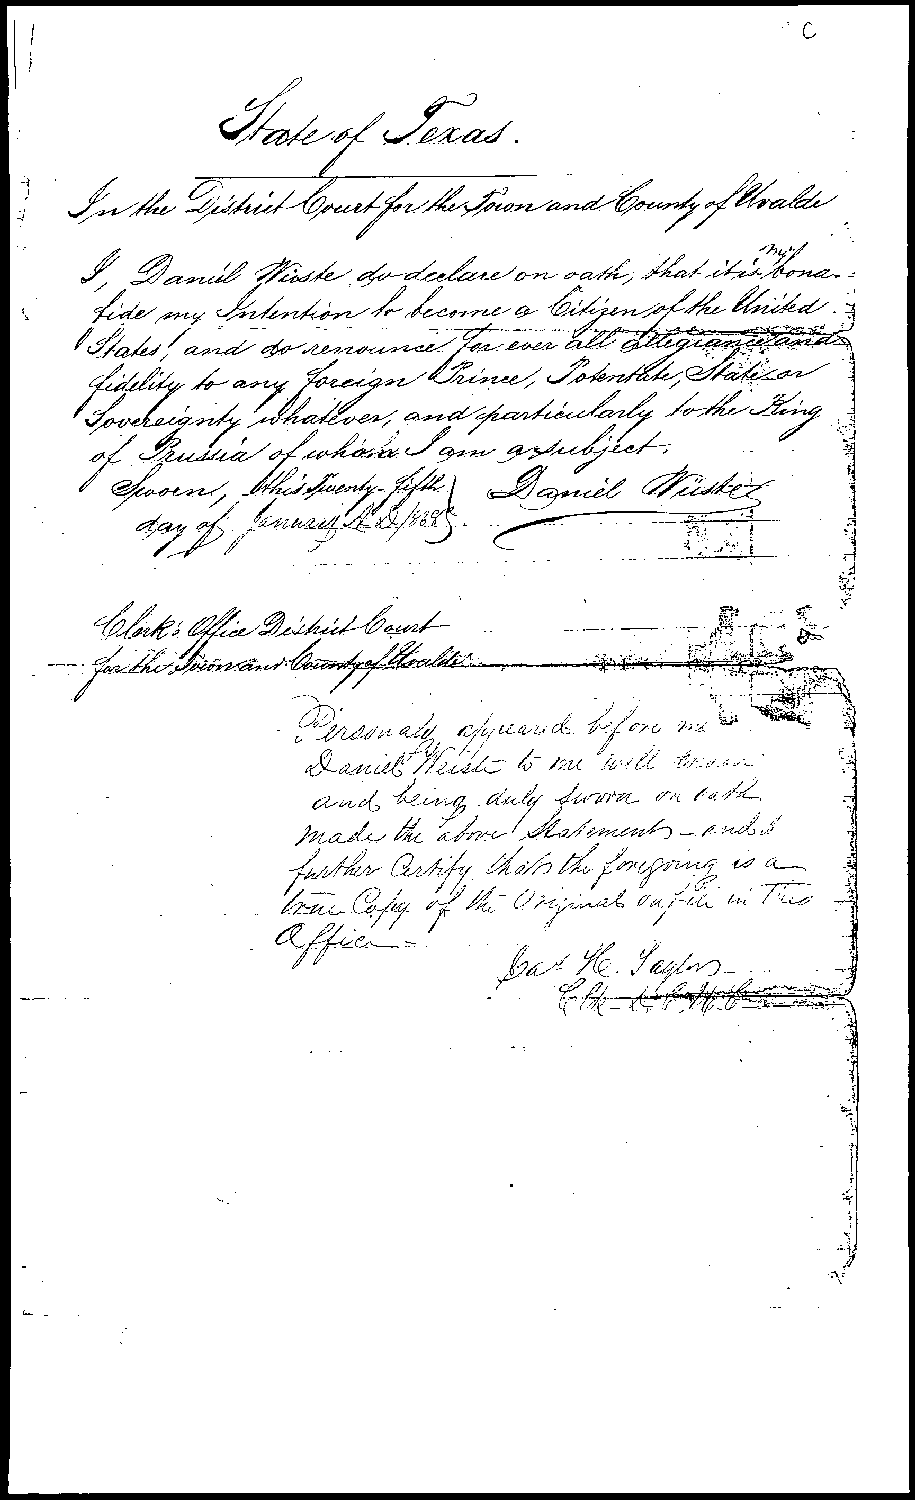 C
State of Texas.
In the District Court for the Town and County of Uvalde
I, Daniel Wüste do declare on oath, that it is my bona-
fide my Intention to become a Citizen of the United
States, and do renounce for ever all allegiance and
fidelity to any foreign Prince, Potentate, State or
Sovereignty whatever, and particularly to the King
of Prussia of whom I am a subject.
Sworn, this Twenty-fifth
day of January A.D.
Daniel Wüste
Clerk's Office District Court
for the Town and County of Uvalde
Personaly appeared before me
Daniel Weiste to me well known
and being duly sworn on oath
made the above Statements - and I
further Certify that the foregoing is a
true Copy of the Original on file in This
Office -
H. Taylor
Clk D.C.